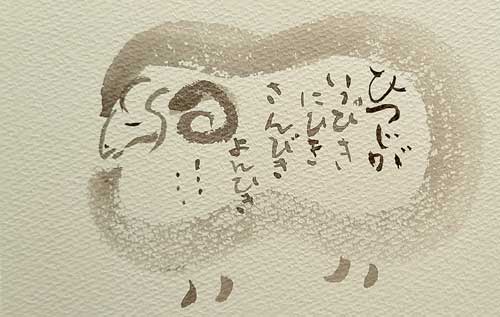 ひつじが
いっぴき
にひき
さんびき
よんひき
…